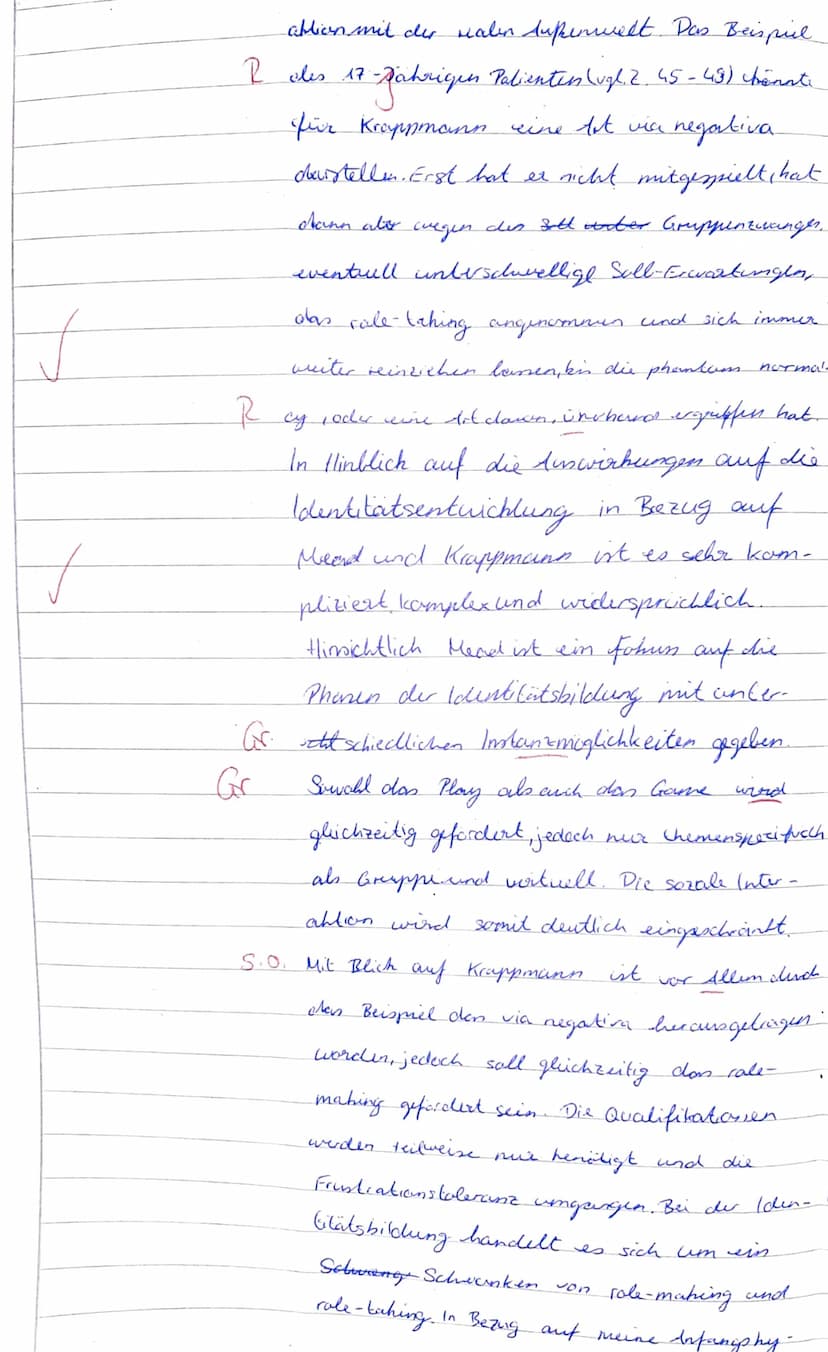 aktion mit der realen Außenwelt. Das Beispiel
R des 17-Jährigen Patienten (vgl. Z. 45-49) könnte
für Krappmann eine Art via negativa
darstellen. Erst hat er nicht mitgespielt, hat
dann aber wegen des Gruppenzwanges,
eventuell unterschwellige Soll-Erwartungen,
das role-taking angenommen und sich immer
weiter reinziehen lassen, bis die phantom normal-
R cy, oder eine Art davon, überhand ergriffen hat.
In Hinblick auf die Auswirkungen auf die
Identitätsentwicklung in Bezug auf
Mead und Krappmann ist es sehr kom-
pliziert, komplex und widersprüchlich.
Hinsichtlich Mead ist ein Fokus auf die
Phasen der Identitätsbildung mit unter-
Gr. schiedlichen Instanzmöglichkeiten gegeben.
Gr Sowohl das Play als auch das Game wird
gleichzeitig gefordert, jedoch nur themenspezifisch
als Gruppe und virtuell. Die soziale Inter-
aktion wird somit deutlich eingeschränkt.
S.O. Mit Blick auf Krappmann ist vor Allem durch
das Beispiel den via negativa herausgetragen
worden, jedoch soll gleichzeitig das role-
making gefördert sein. Die Qualifikationen
werden teilweise nur benötigt und die
Frustrationstoleranz umgangen. Bei der Iden-
titätsbildung handelt es sich um ein
Schwang Schwanken von role-making und
role-taking. In Bezug auf meine Anfangshy-